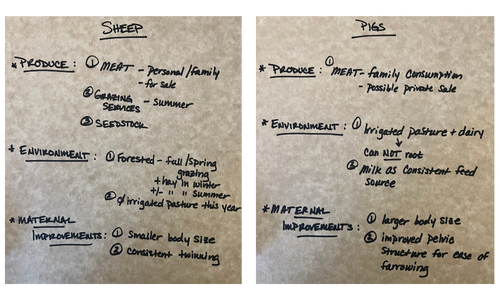 SHEEP
* PRODUCE : ① MEAT - personal/family
- for sale
② GRAZING SERVICES - Summer
③ SEEDSTOCK
* ENVIRONMENT : ① Forested - fall/spring
grazing
+ hay in winter
+/- " " Summer
② ∅ irrigated pasture this year
* MATERNAL
IMPROVEMENTS : ① Smaller body size
② consistent twinning
PIGS
* PRODUCE : ① MEAT - family consumption
- possible private sale
* ENVIRONMENT : ① Irrigated pasture + dairy
↓
can NOT root
② Milk as consistent feed
source
* MATERNAL
IMPROVEMENTS : ① larger body size
② improved pelvic
structure for ease of
farrowing